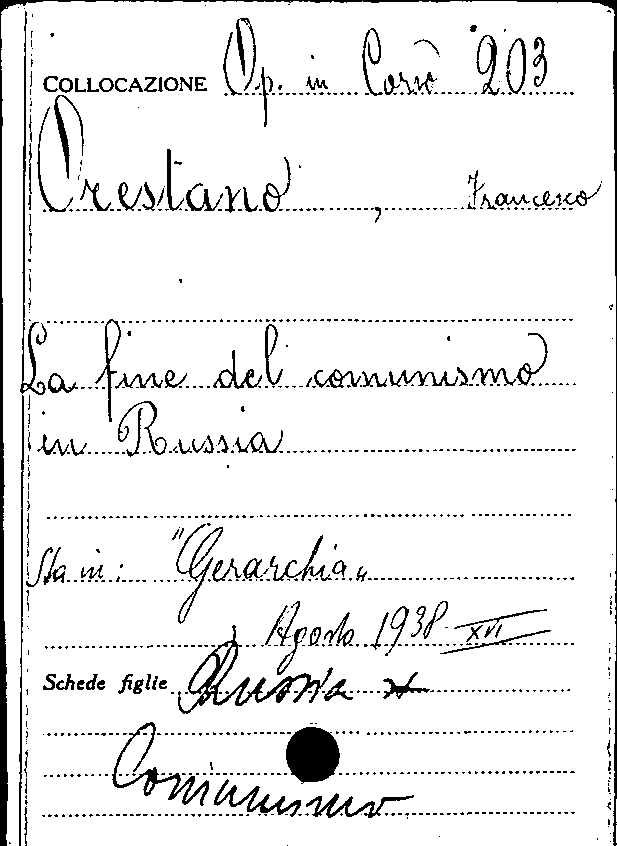 COLLOCAZIONE Op. in Corso 203
Orestano, Francesco
La fine del comunismo
in Russia
Sta in: "Gerarchia"
Agosto 1938 XVI
Schede figlie Russia
Comunismo